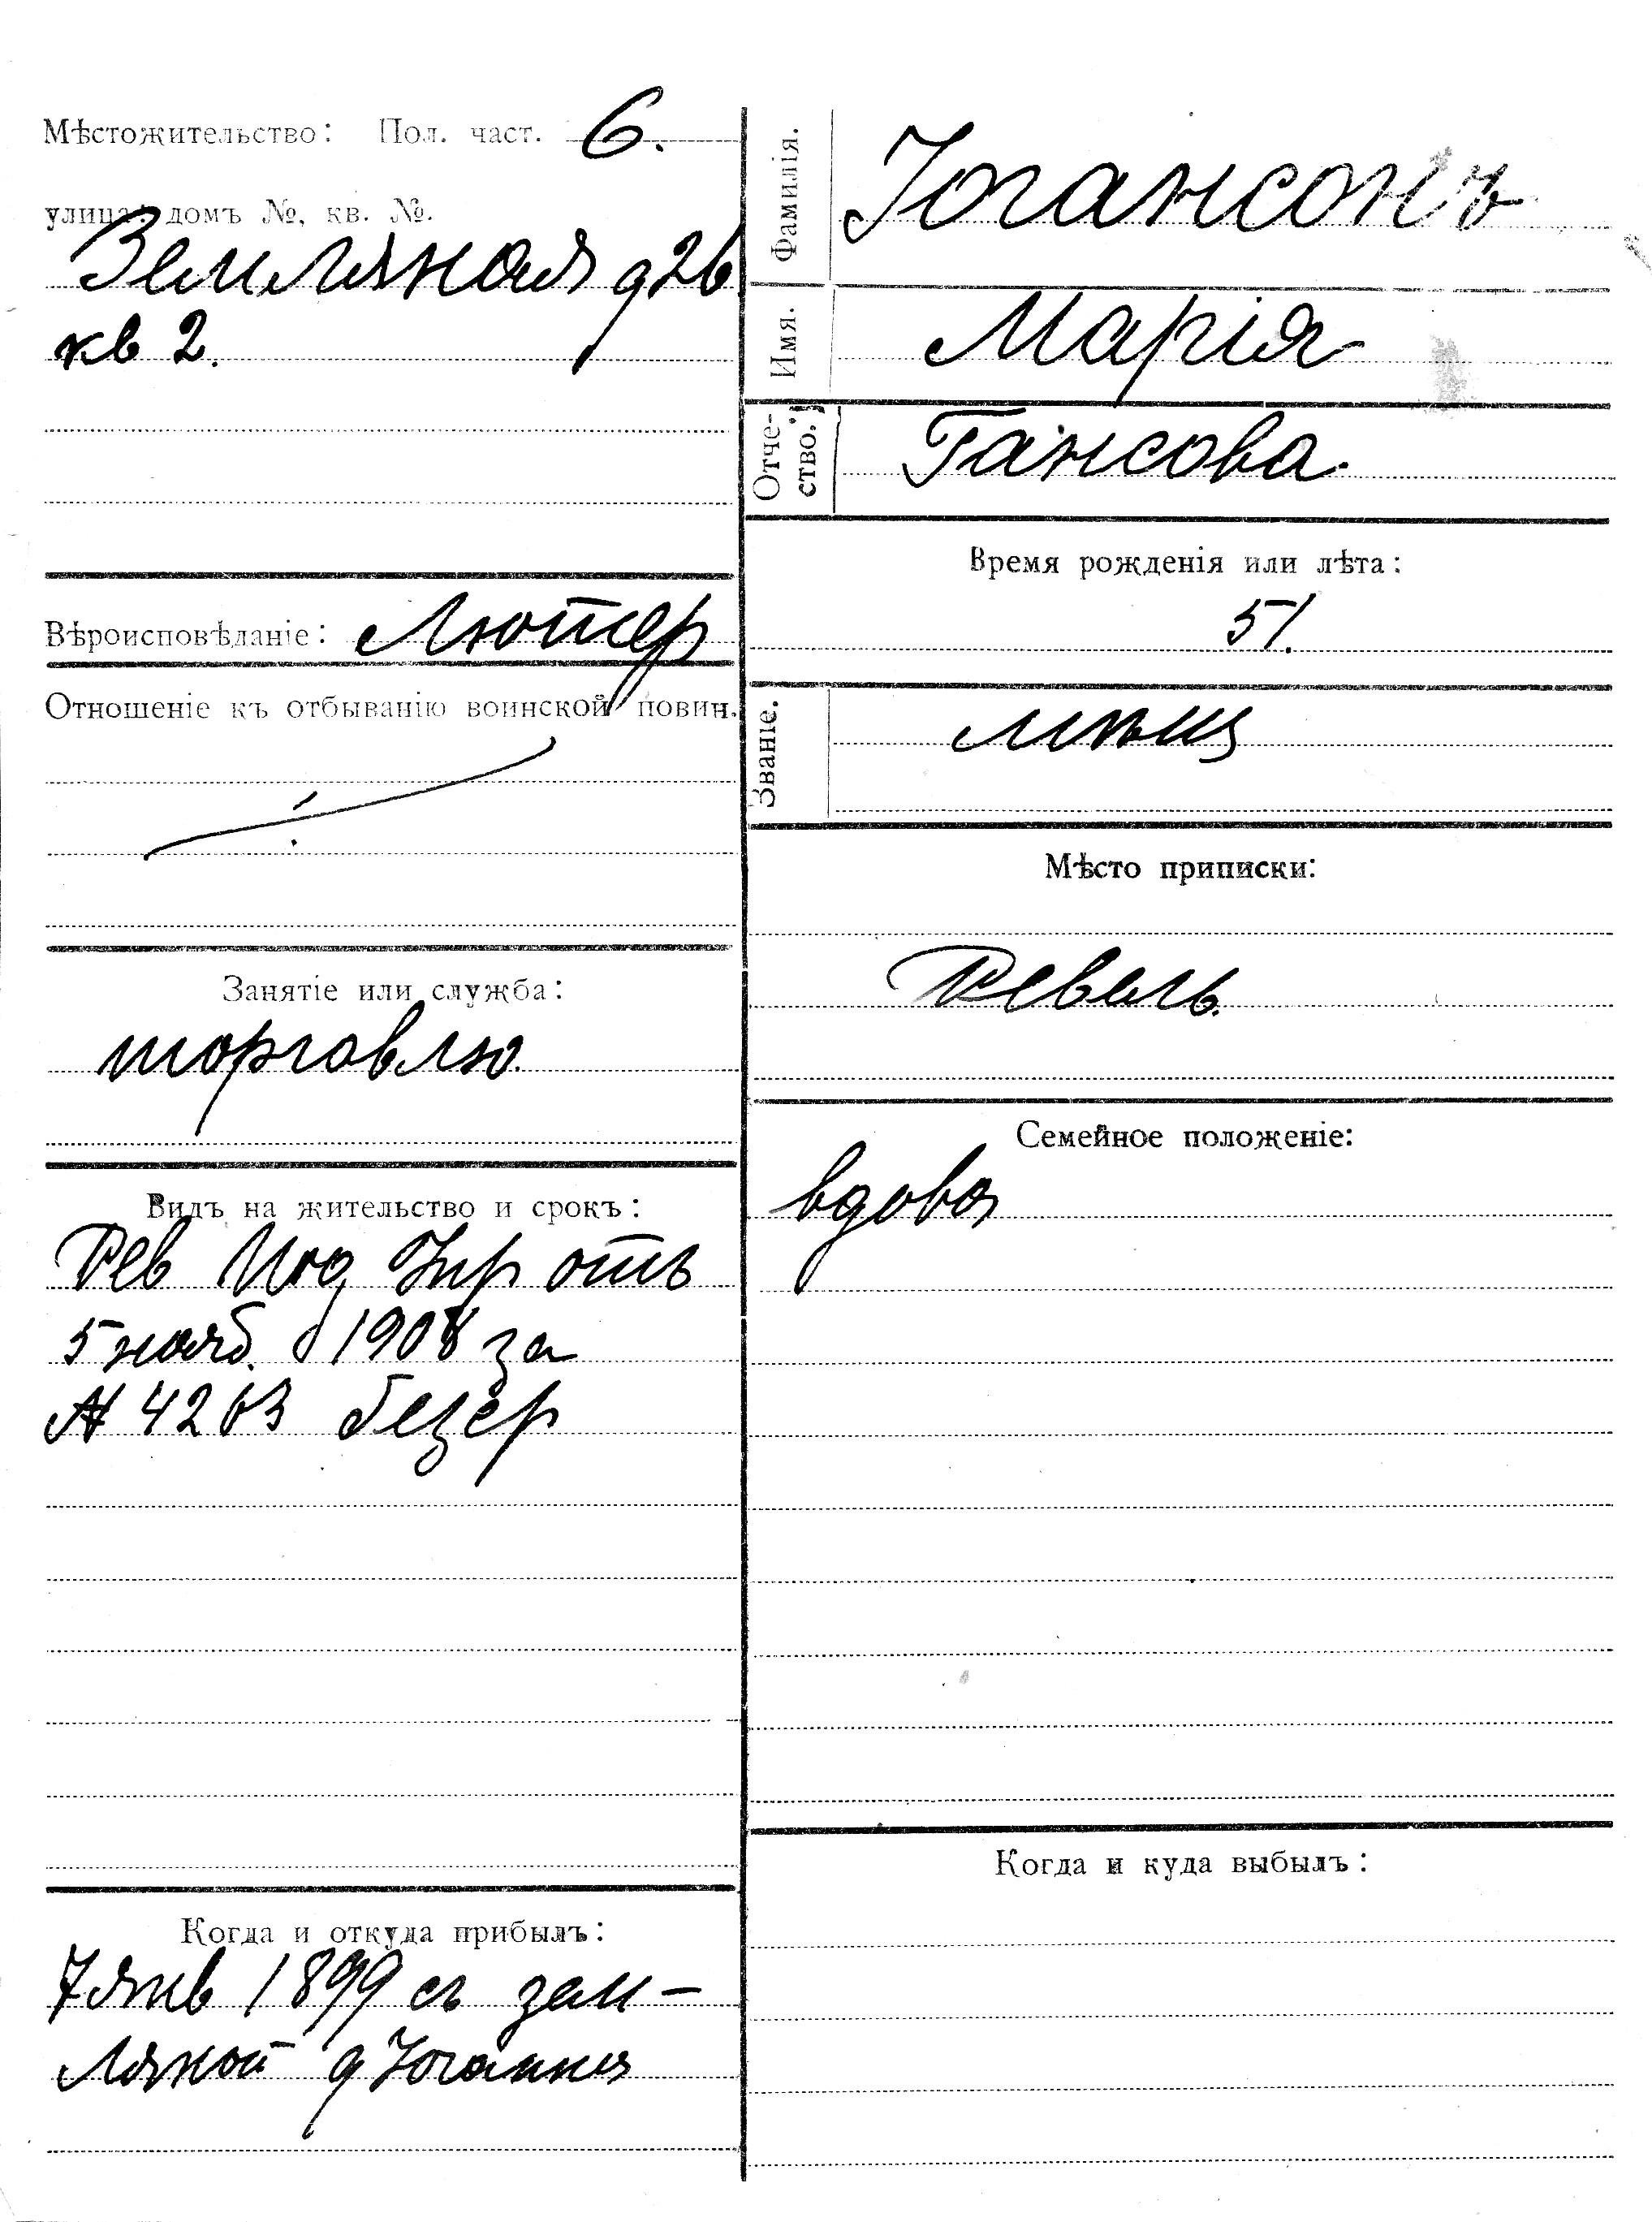 Мѣстожительство: Пол. част. 6.
улица, домъ №, кв. №.
Земляная д 26
кв 2.
Вѣроисповѣданіе: Лютер
Отношеніе къ отбыванію воинской повин.
Занятіе или служба:
торговлю
Видъ на жительство и срокъ:
Рев Мѣщ Упр отъ
5 нояб. 1908 за
№ 4263 безср
Когда и откуда прибылъ:
7 янв 1899 съ зем-
ляной д Югання
Фамилія. Югансонъ
Имя. Марія
Отче-
ство. Гансова.
Время рожденія или лѣта:
51.
Званіе. мѣщ
Мѣсто приписки:
Ревель.
Семейное положеніе:
вдова
Когда и куда выбылъ: